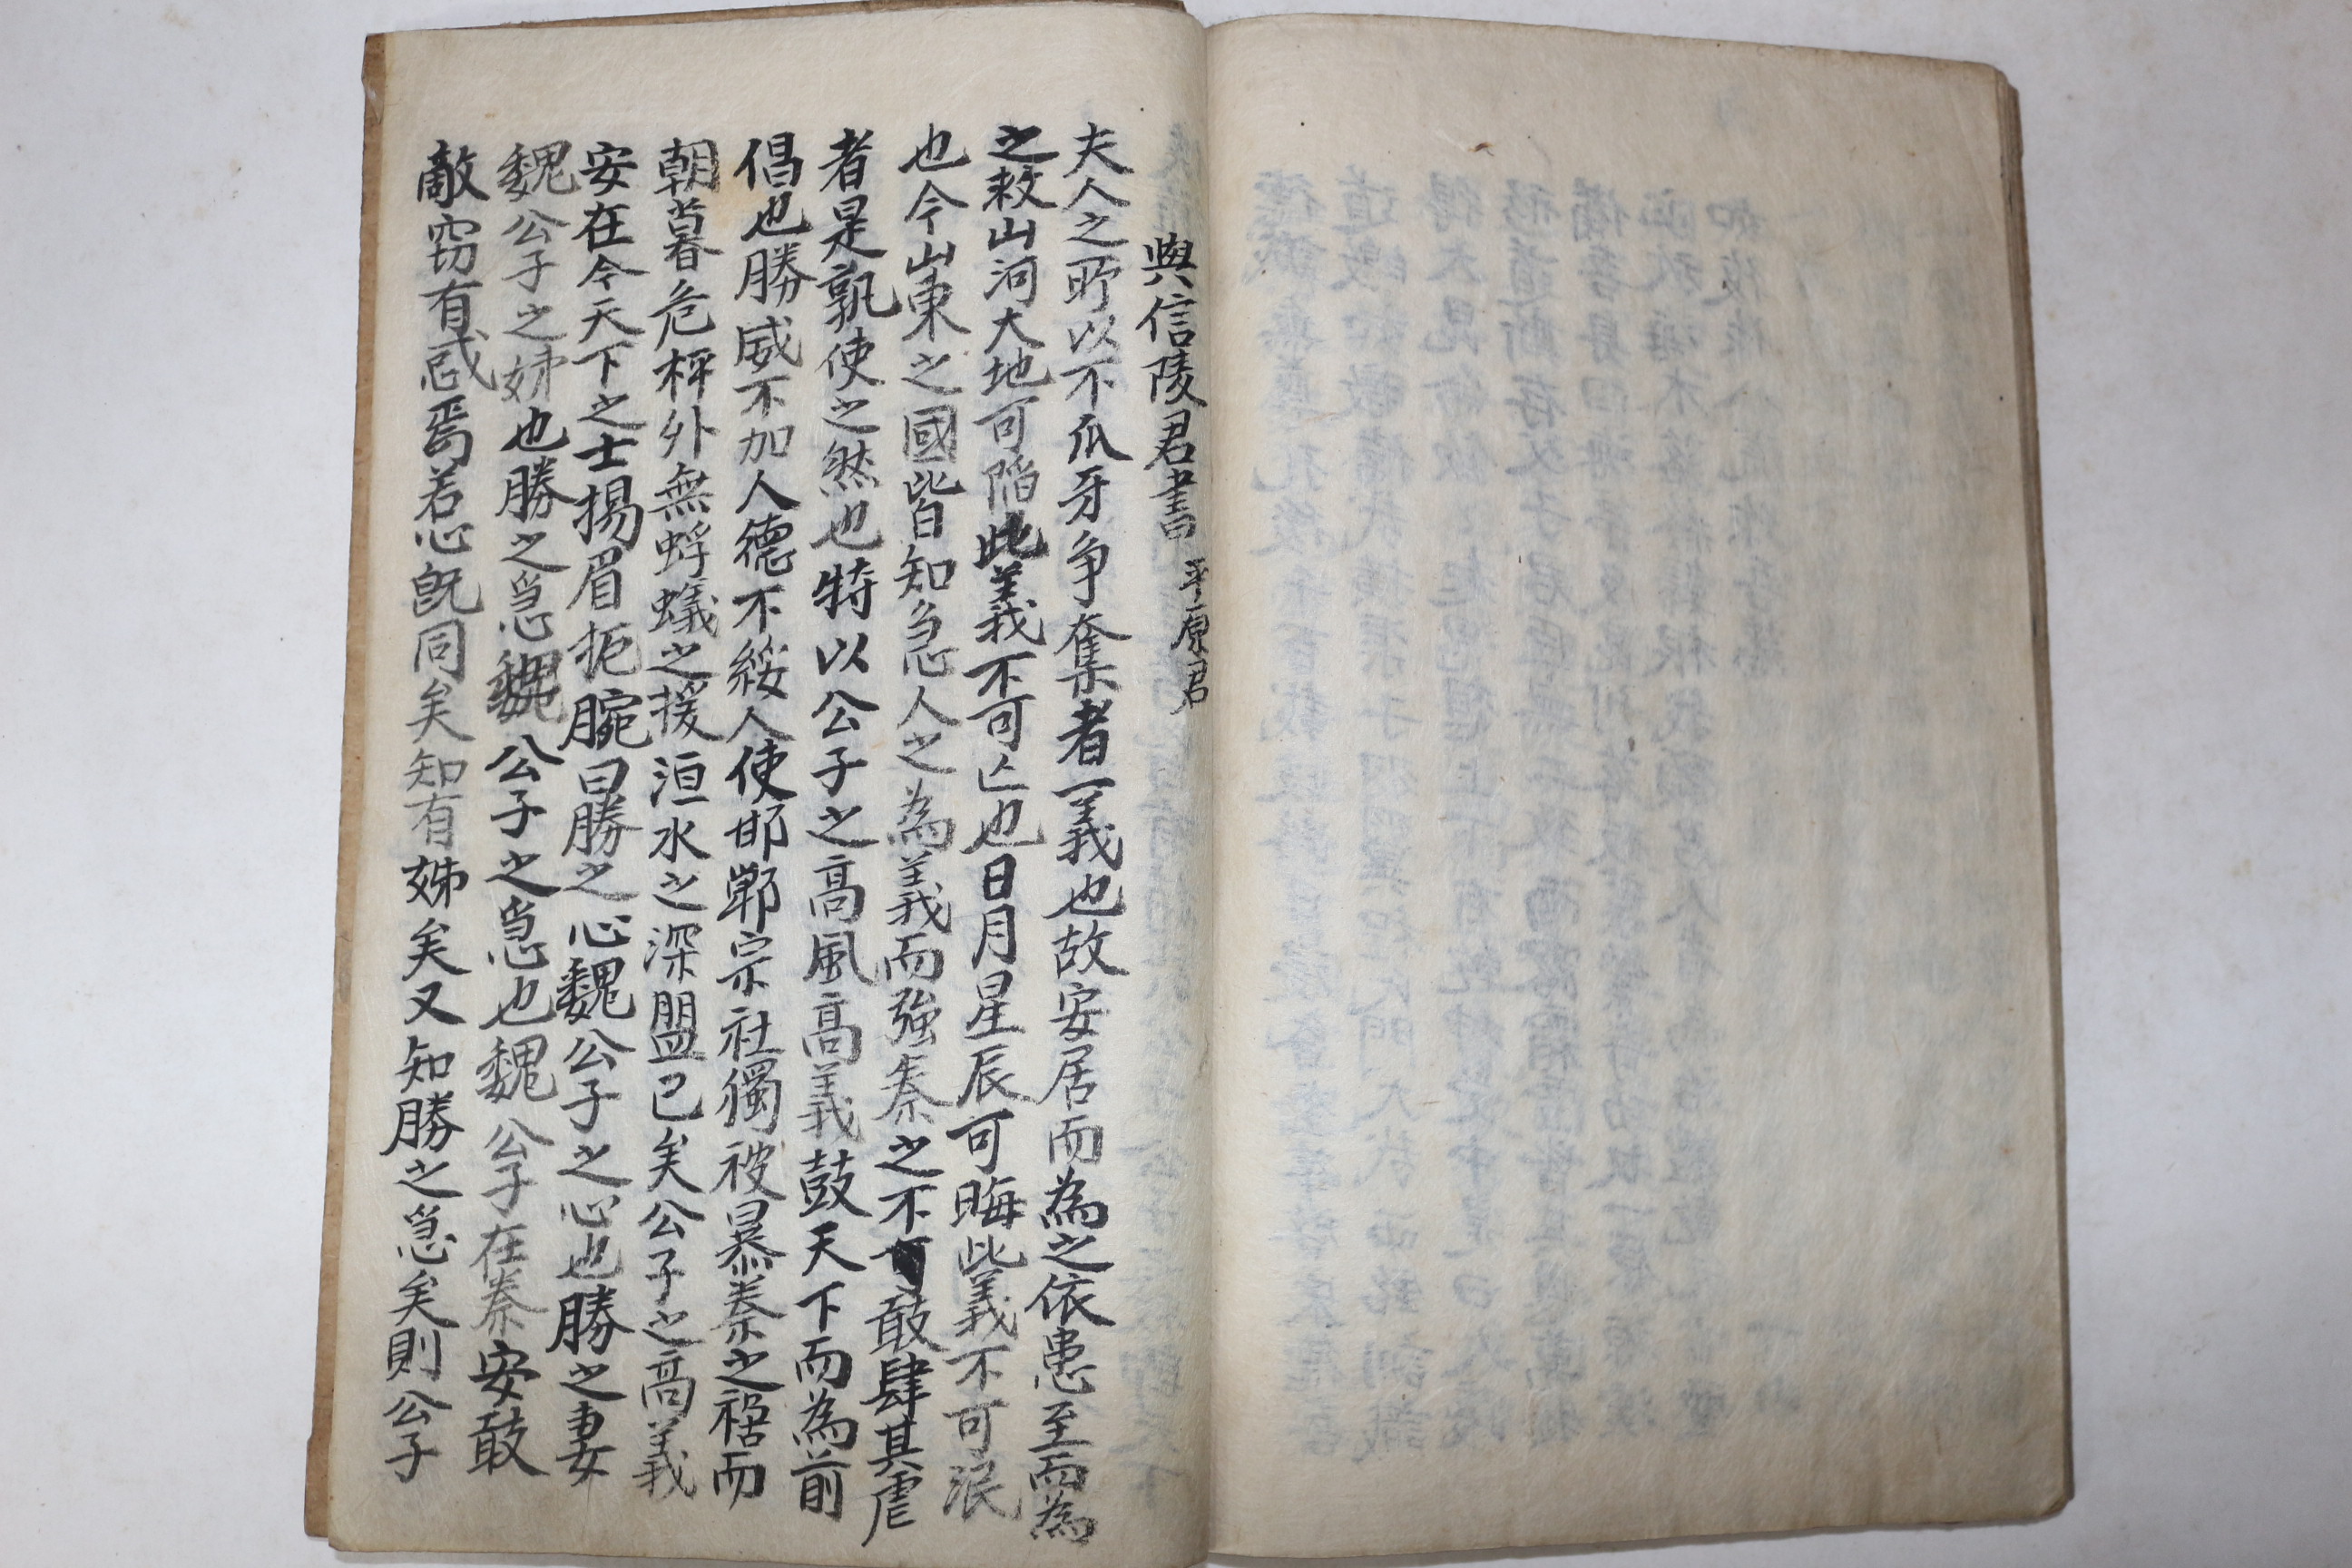 與信陵君書 平原君
夫人之所以不爪牙爭奪者一義也故安居而為之依患至而為
之救山河大地可陷此義不可亡也日月星辰可晦此義不可泯
也今山東之國皆知急人之為義而強秦之不可敢肆其虐
者是孰使之然也特以公子之高風高義鼓天下而為前
倡也勝威不加人德不綏人使邯鄲宗社獨被暴秦之裾而
朝暮危枰外無蜉蟻之援洹水之深盟已矣公子之高義
安在今天下之士揚眉扼腕曰勝之心魏公子之心也勝之妻
魏公子之姊也勝之急魏公子之急也魏公子在秦安敢
敵窃有惑焉若心既同矣知有姊矣又知勝之急矣則公子